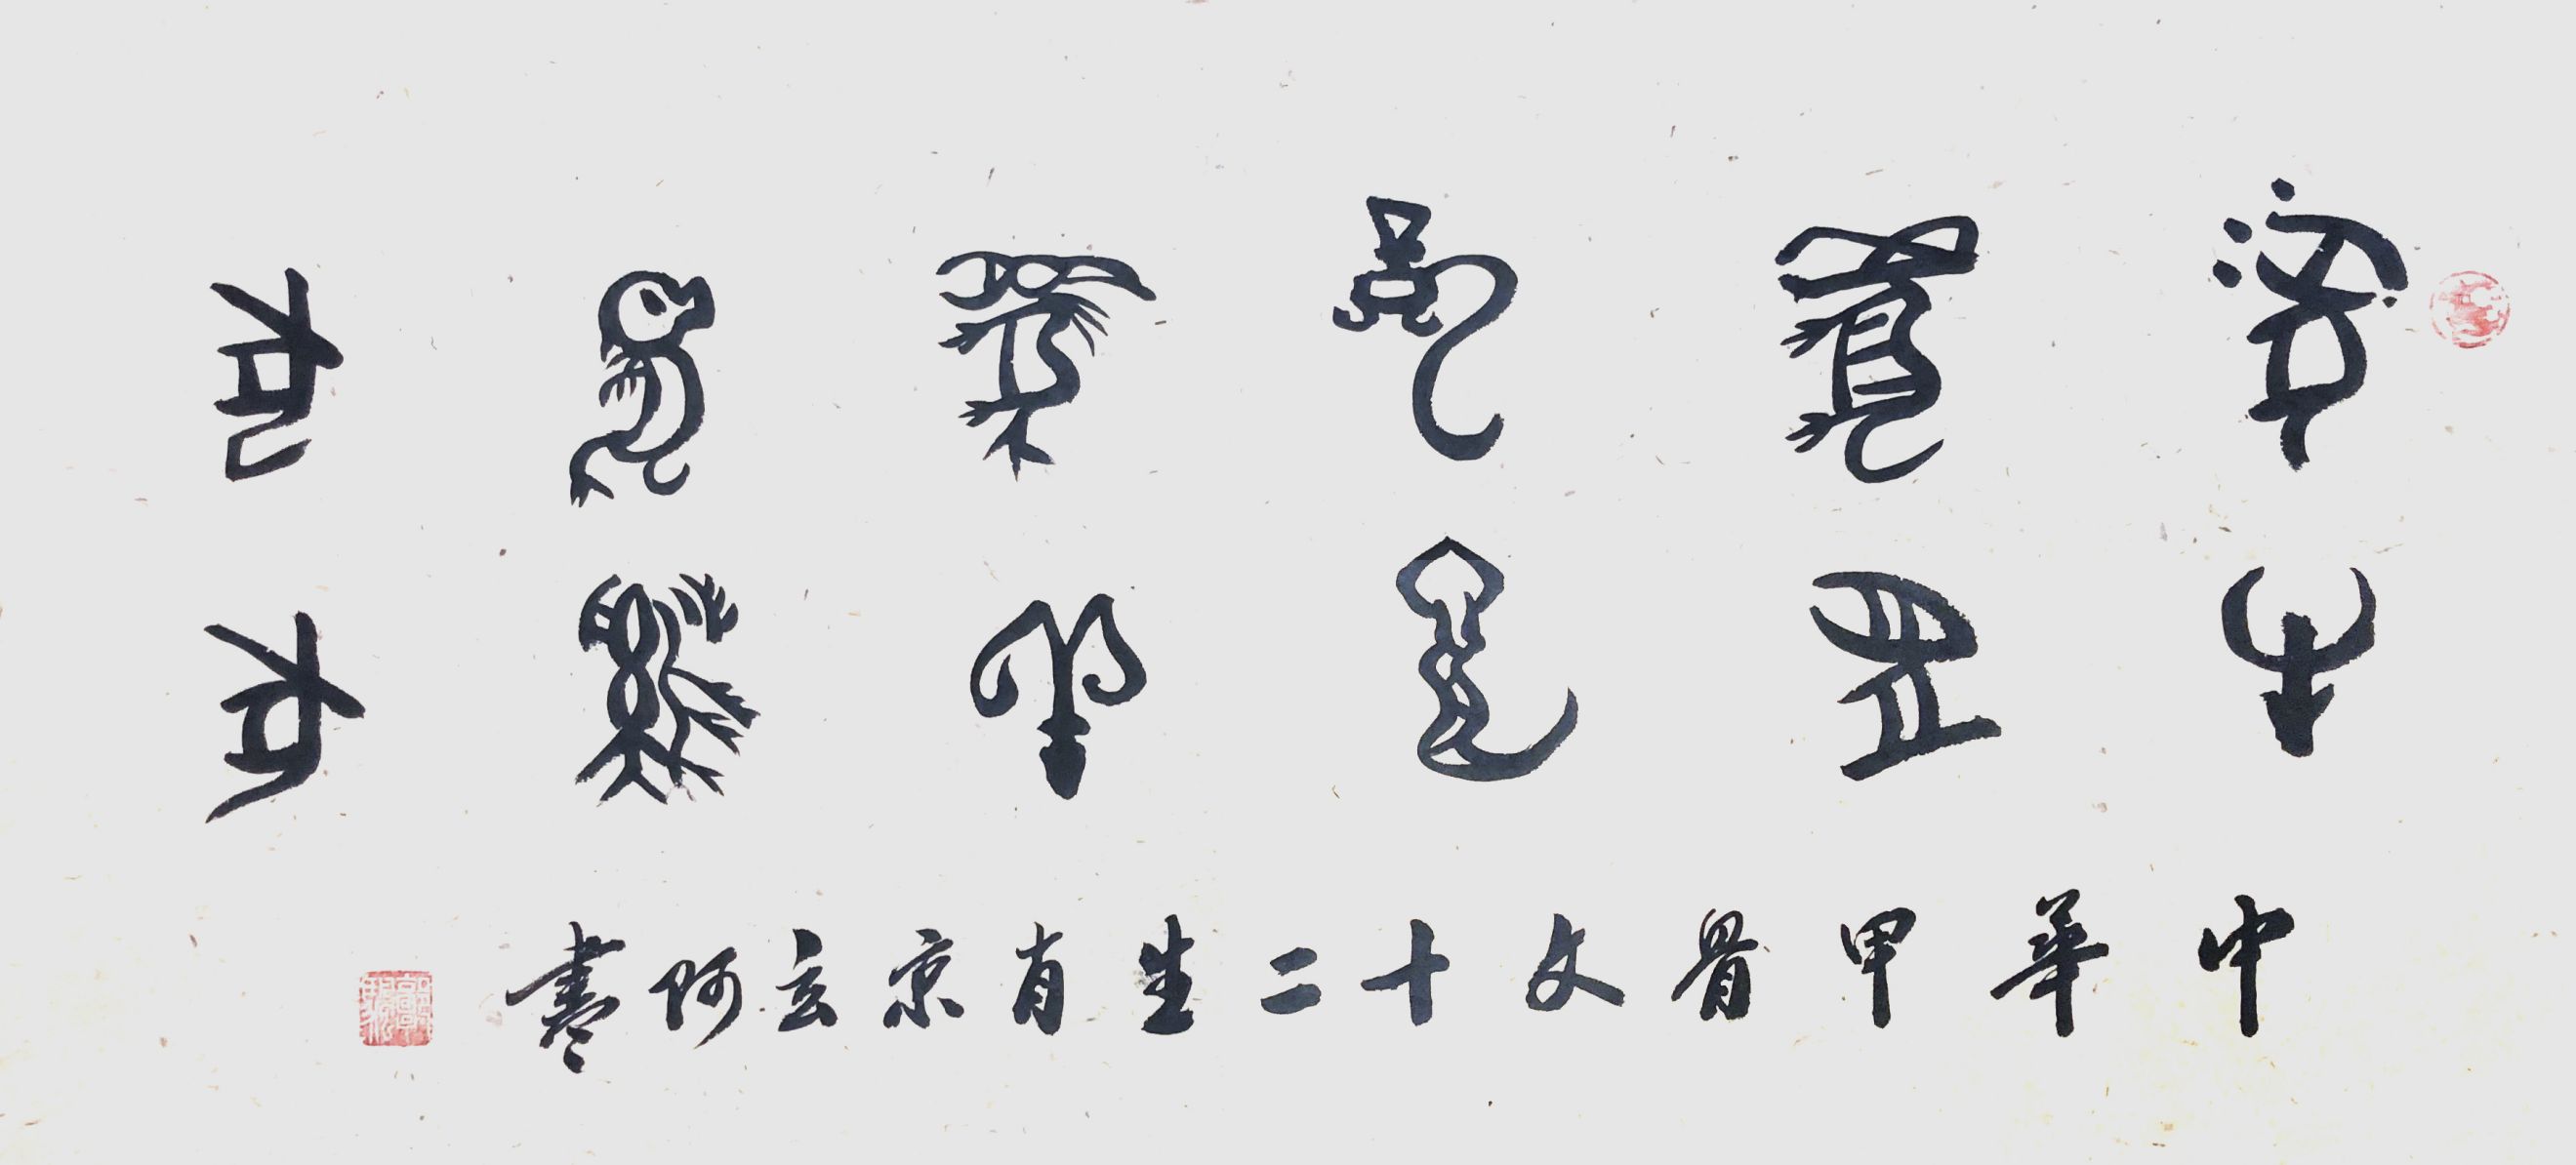 鼠牛
虎兔
龍蛇
馬羊
猴雞
犬豕
中華甲骨文十二生肖京玄阿書